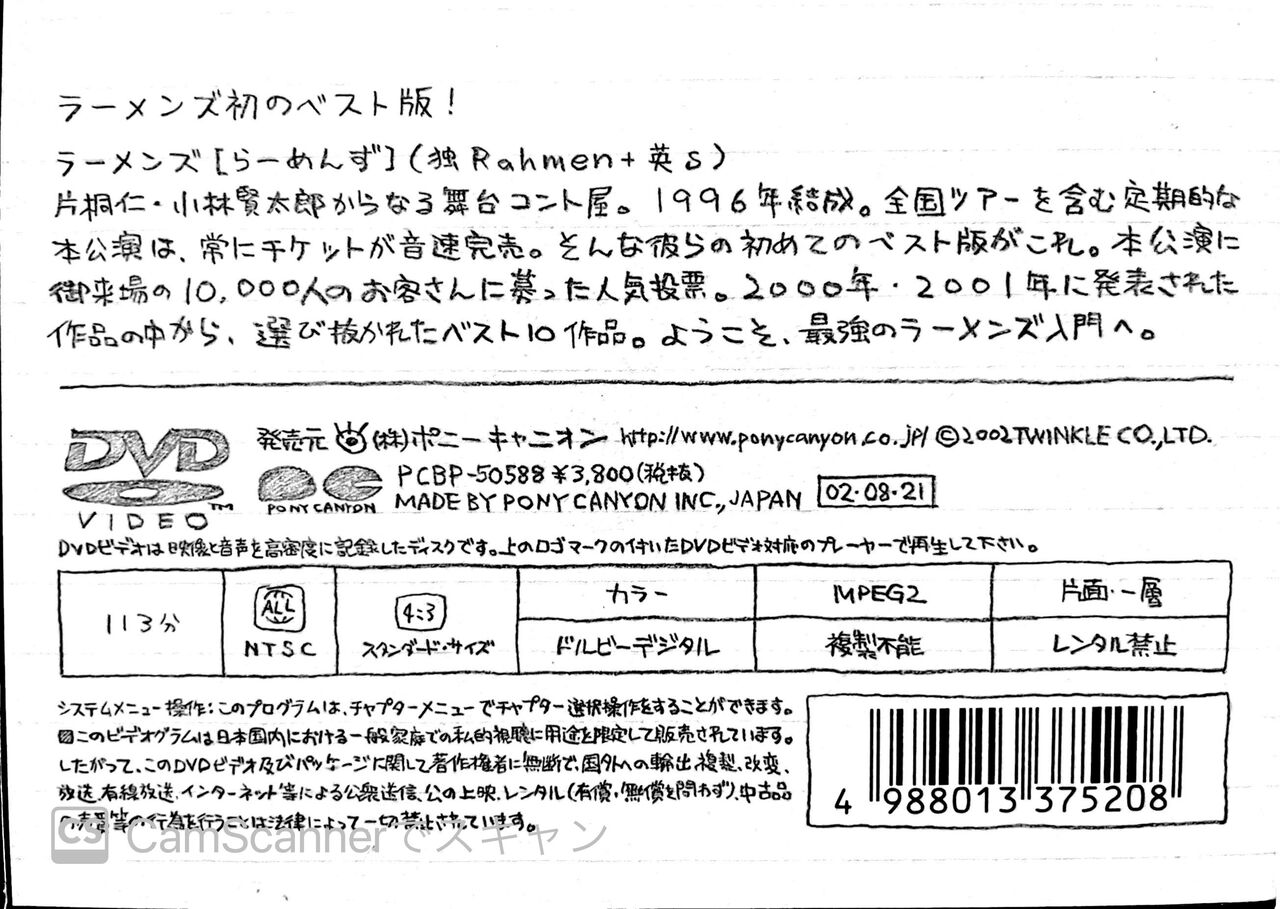 ラーメンズ初のベスト版！
ラーメンズ[らーめんず](独Rahmen+英s)
片桐仁・小林賢太郎からなる舞台コント屋。1996年結成。全国ツアーを含む定期的な
本公演は、常にチケットが音速完売。そんな彼らの初めてのベスト版がこれ。本公演に
御来場の10,000人のお客さんに募った人気投票。2000年・2001年に発表された
作品の中から、選び抜かれたベスト10作品。ようこそ、最強のラーメンズ入門へ。
DVD
VIDEO™
発売元 (株)ポニーキャニオン http://www.ponycanyon.co.jp/ ©2002TWINKLE CO.,LTD.
PONY CANYON
PCBP-50588 ¥3,800(税抜)
MADE BY PONY CANYON INC., JAPAN 02・08・21
DVDビデオは映像と音声を高密度に記録したディスクです。上のロゴマークの付いたDVDビデオ対応のプレーヤーで再生して下さい。
113分
ALL
NTSC
4:3
スタンダード・サイズ
カラー
MPEG2
片面・一層
ドルビーデジタル
複製不能
レンタル禁止
システムメニュー操作：このプログラムは、チャプターメニューでチャプター選択操作をすることができます。
このビデオグラムは日本国内における一般家庭での私的視聴に用途を限定して販売されています。
したがって、このDVDビデオ及びパッケージに関して著作権者に無断で、国外への輸出、複製、改変、
放送、有線放送、インターネット等による公衆送信、公の上映、レンタル(有償・無償を問わず)、中古品
の売買等の行為を行うことは法律によって一切禁止されています。
4 988013 375208
CS CamScannerでスキャン